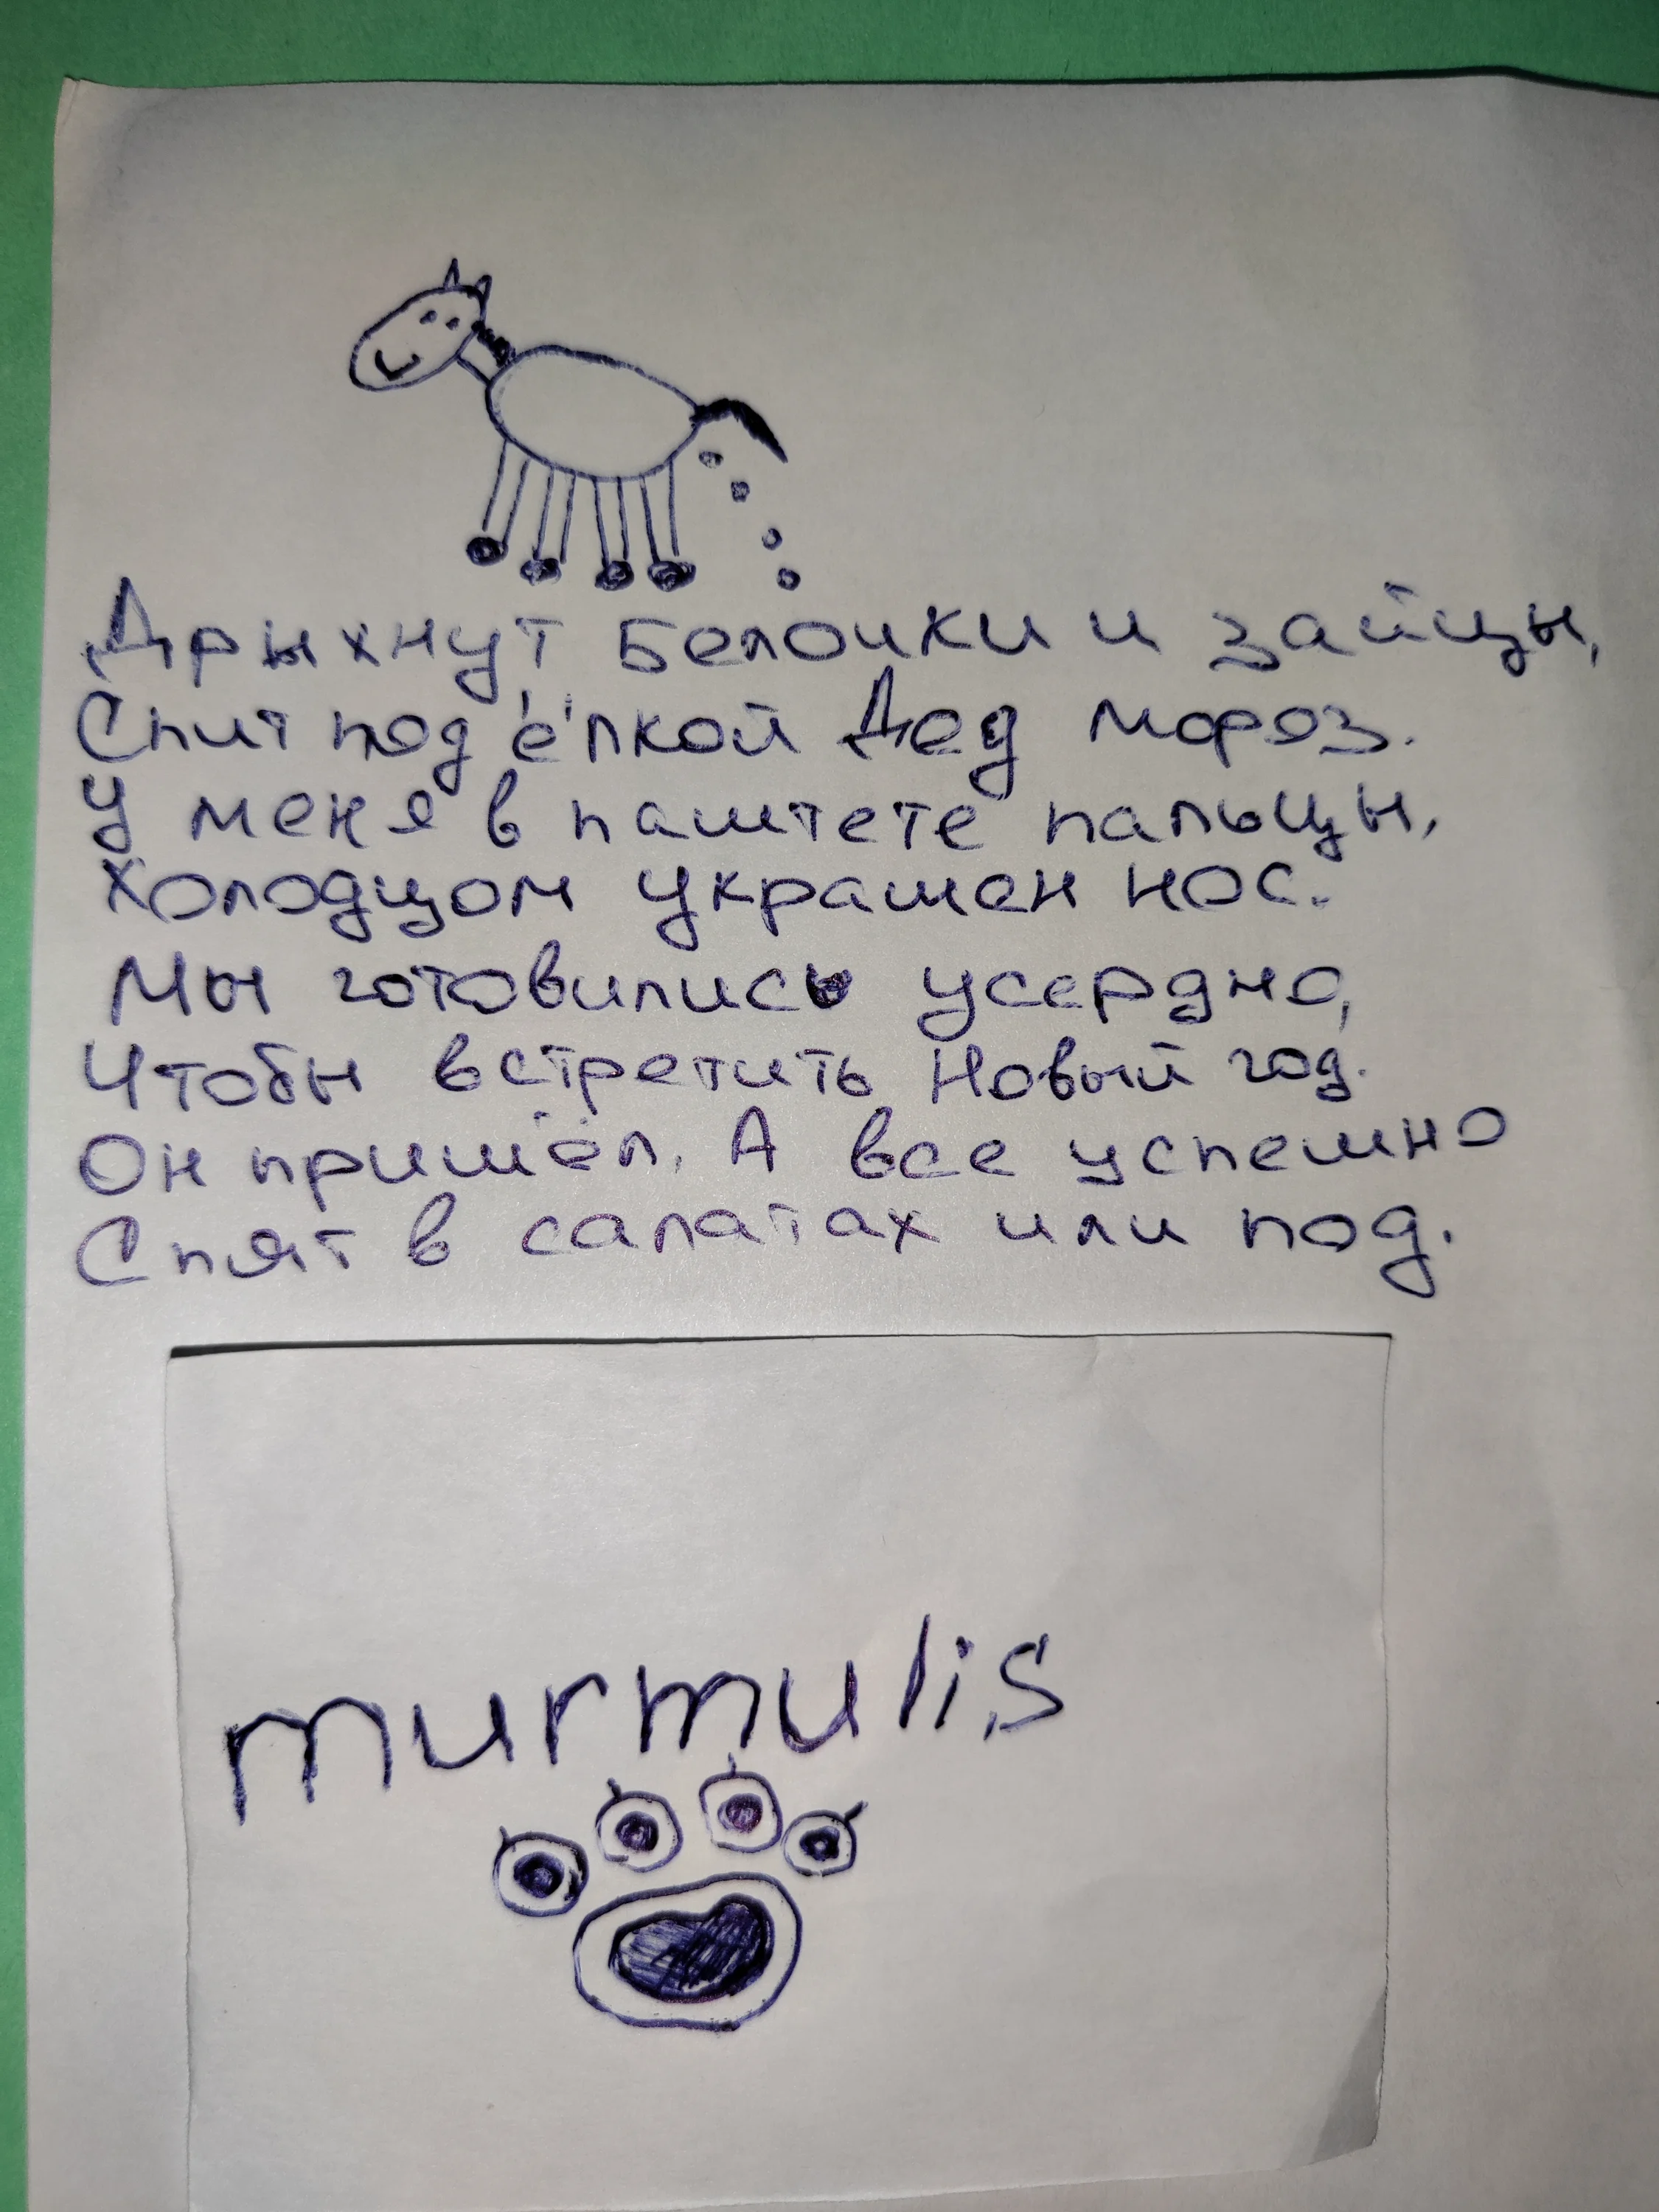 Дрыхнут белочки и зайцы,
Спит под ёлкой Дед мороз.
У меня в паштете пальцы,
Холодцом украшен нос.
Мы готовились усердно,
Чтобы встретить Новый год.
Он пришёл. А все успешно
Спят в салатах или под.
murmulis